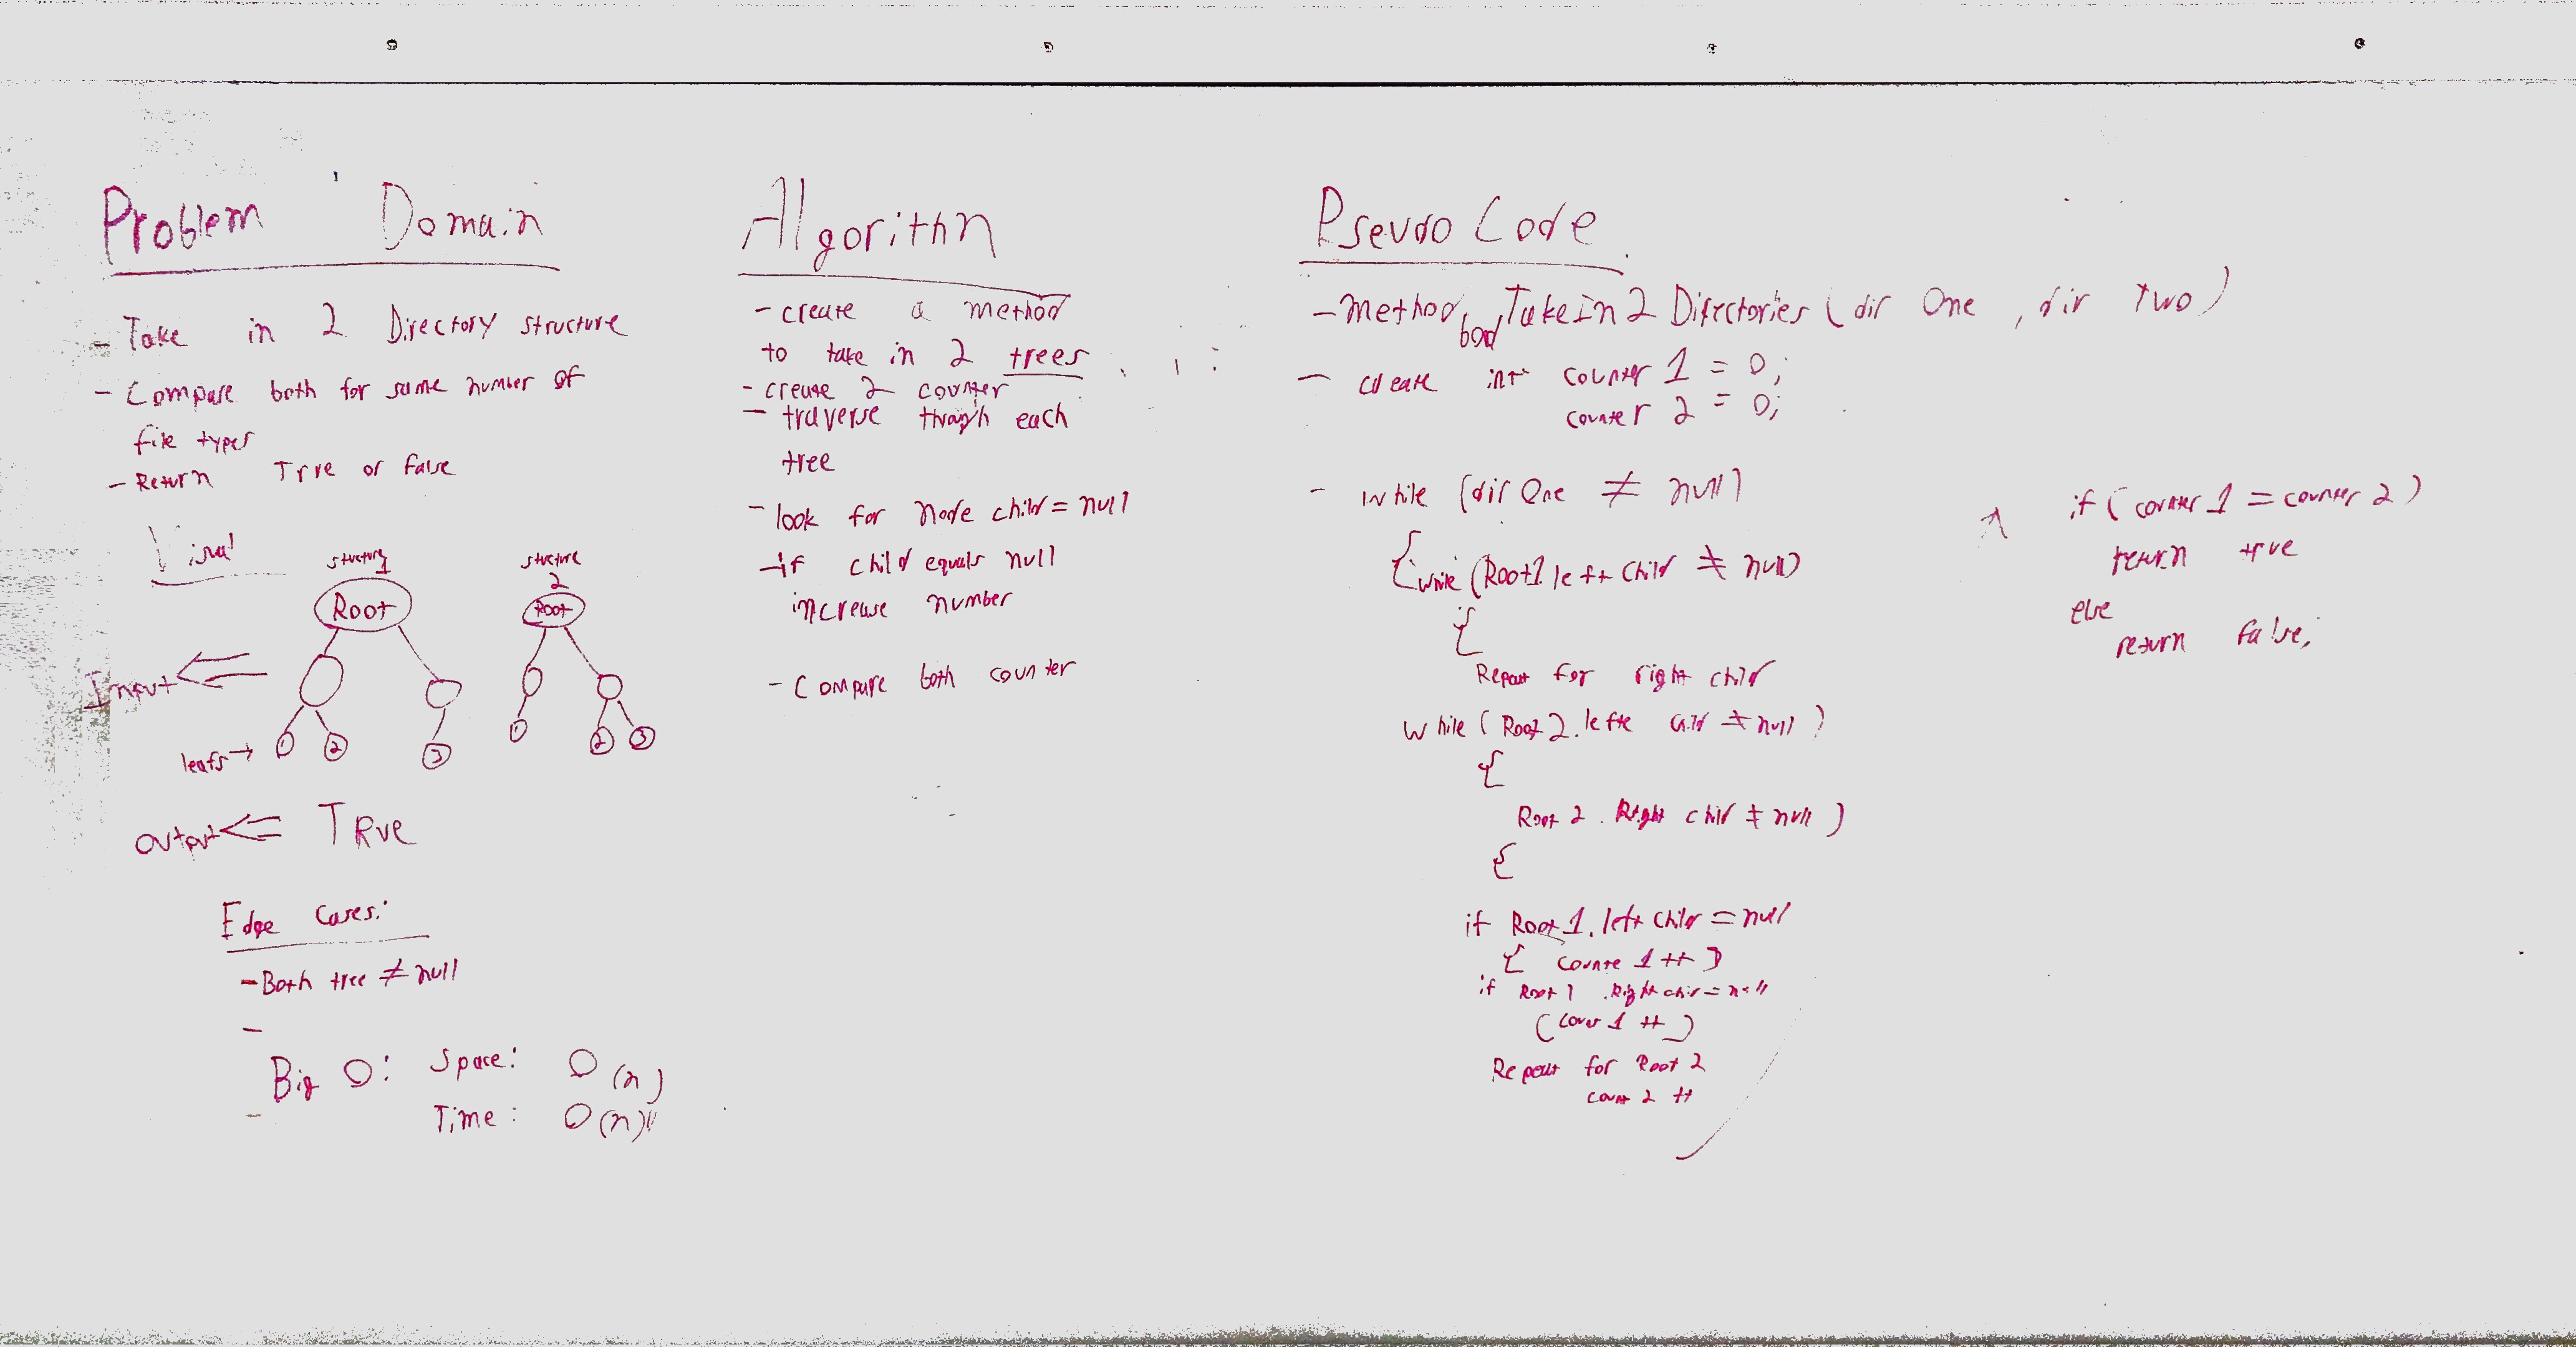 Problem Domain
- Take in 2 Directory structure
- Compare both for same number of
file types
- Return True or False
Visual
structure
1
Root
structure
2
Root
Input
leafs →
1
2
3
1
2
3
output
TRue
Edge Cases:
- Both tree ≠ null
-
Big O: Space: O(n)
Time: O(n)
Algorithm
- create a method
to take in 2 trees
- create 2 counter
- traverse through each
tree
- look for node child = null
- if child equals null
increase number
- Compare both counter
Pseudo Code
- method, bool, TakeIn2Directories (dir One, dir Two)
- create int counter 1 = 0;
counter 2 = 0;
- while (dir One ≠ null)
{ while (Root1.left child ≠ null)
{
Repeat for right child
while (Root 2. left child ≠ null)
{
Root 2. Right child ≠ null )
{
if Root 1. left child = null
{ counte 1 ++ }
if Root 1 . Right child = null
( 1 ++ )
Repeat for Root 2
count 2 ++
if (counter 1 = counter 2)
return true
else
return false;